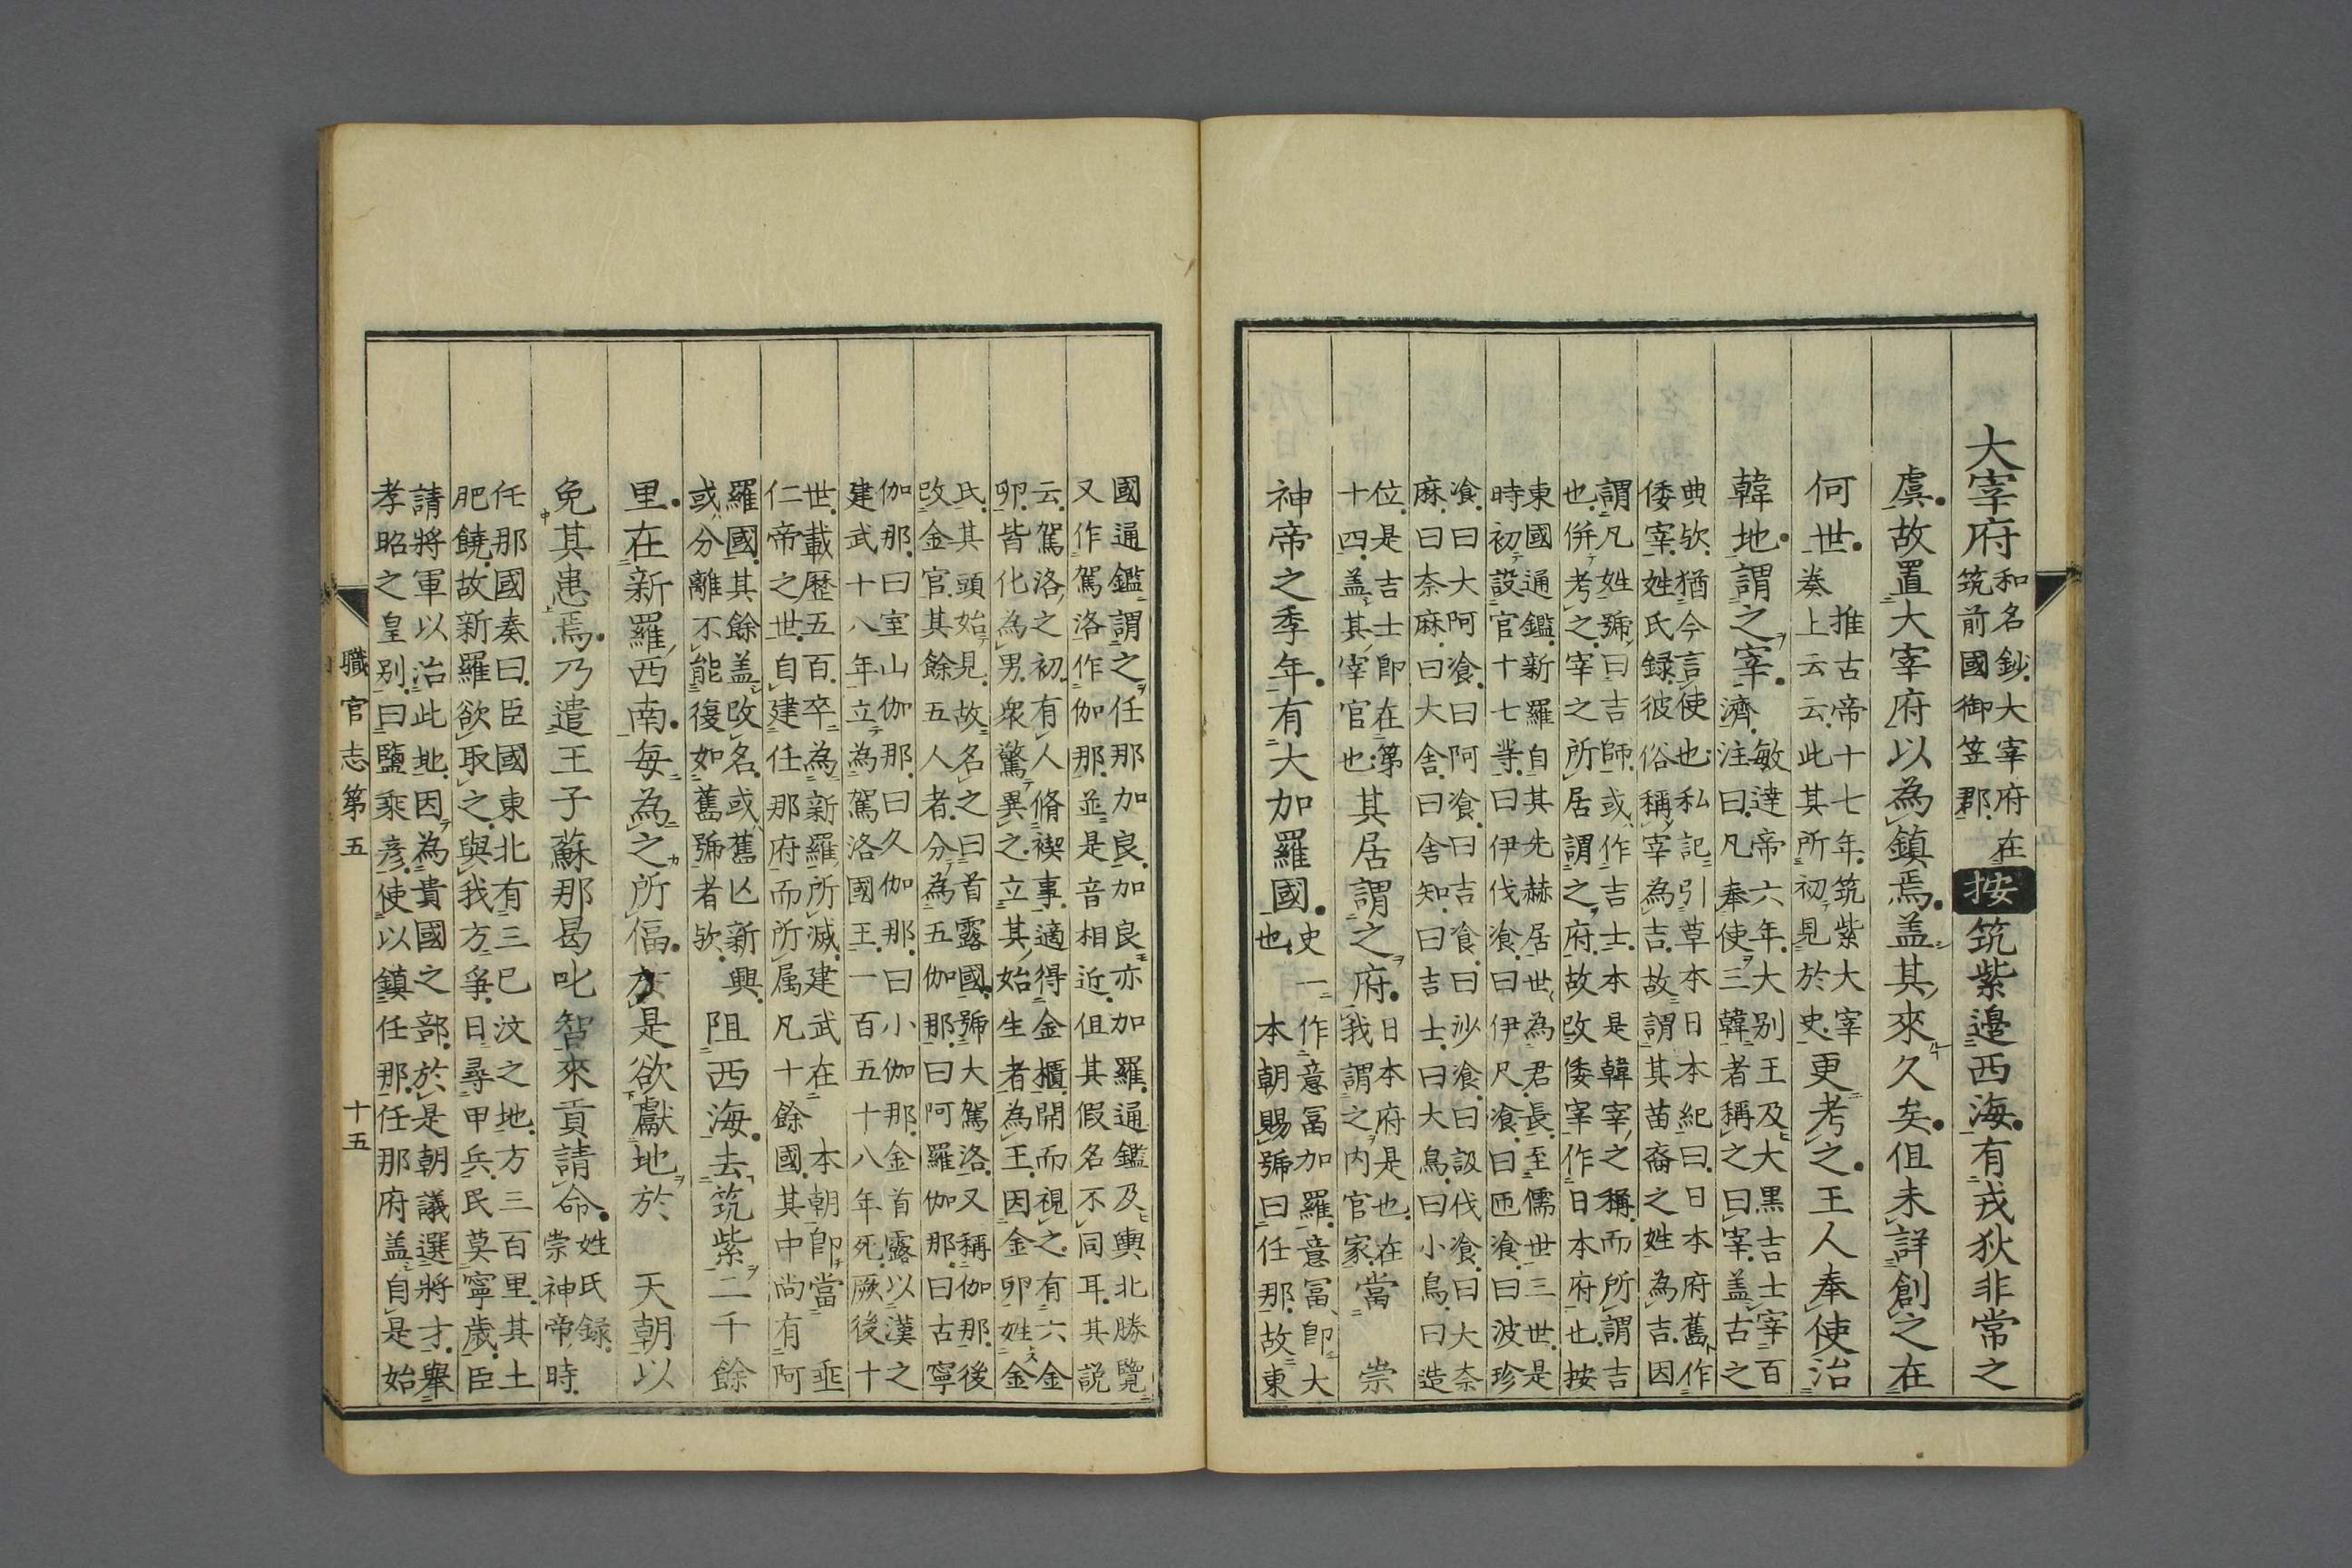 大宰府和名鈔大宰府在筑前國御笠郡按筑紫邊西海有戎狄非常之
虞故置大宰府以為鎮焉盖其來久矣伹未詳創之在
何世推古帝十七年筑紫大宰奏上云云此其所初見於史更考之王人奉使治
韓地謂之宰敏達帝六年大別王及大黒吉士宰百濟注曰凡奉使三韓者稱之曰宰盖古之
典欤猶今言使也私記引草本日本紀曰日本府舊作
倭宰姓氏録彼俗稱宰為吉故謂其苗裔之姓為吉因
謂凡姓號曰吉師或作吉士本是韓宰之稱而所謂吉
也併考之宰之所居謂之府故改倭宰作日本府也按
東國通鑑新羅自其先赫居世為君長至儒世三世是
時初設官十七等曰伊伐飡曰伊尺飡曰匝飡曰波珍
飡曰大阿飡曰阿飡曰吉飡曰沙飡曰級伐飡曰大奈
麻曰奈麻曰大舎曰舎知曰吉士曰大烏曰小烏曰造
位是吉士即在第十四盖其宰官也其居謂之府日本府是也在我謂之内官家當 崇
神帝之季年有大加羅國史一作意冨加羅意冨即大也 本朝賜號曰任那故東
國通鑑謂之任那加良加良亦加羅通鑑及輿北勝覽
又作駕洛作伽那並是音相近伹其假名不同耳其説
云駕洛之初有人脩禊事適得金櫃開而視之有六金
卵皆化為男衆驚異之立其始生者為王因金卵姓金
氏其頭始見故名之曰首露國號大駕洛又稱伽那後
改金官其餘五人者分為五伽那曰阿羅伽那曰古寧
伽那曰室山伽那曰久伽那曰小伽那金首露以漢之
建武十八年立為駕洛國王一百五十八年死厥後十
世載歷五百卒為新羅所滅建武在 本朝即當 垂
仁帝之世自建任那府而所属凡十餘國其中尚有阿
羅國其餘盖改名或舊亾新興
或分離不能復如舊號者欤阻西海去筑紫二千餘
里在新羅西南每為之所偪於是欲獻地於 天朝以
免其患焉乃遣王子蘇那曷叱智來貢請命姓氏録崇神帝時
任那國奏曰臣國東北有三巳汶之地方三百里其土
肥饒故新羅欲取之與我方爭日尋甲兵民莫寧歲臣
請將軍以治此地因為貴國之部於是朝議選將才舉
孝昭之皇別曰鹽乘彦使以鎮任那任那府盖自是始
職官志第五 十五